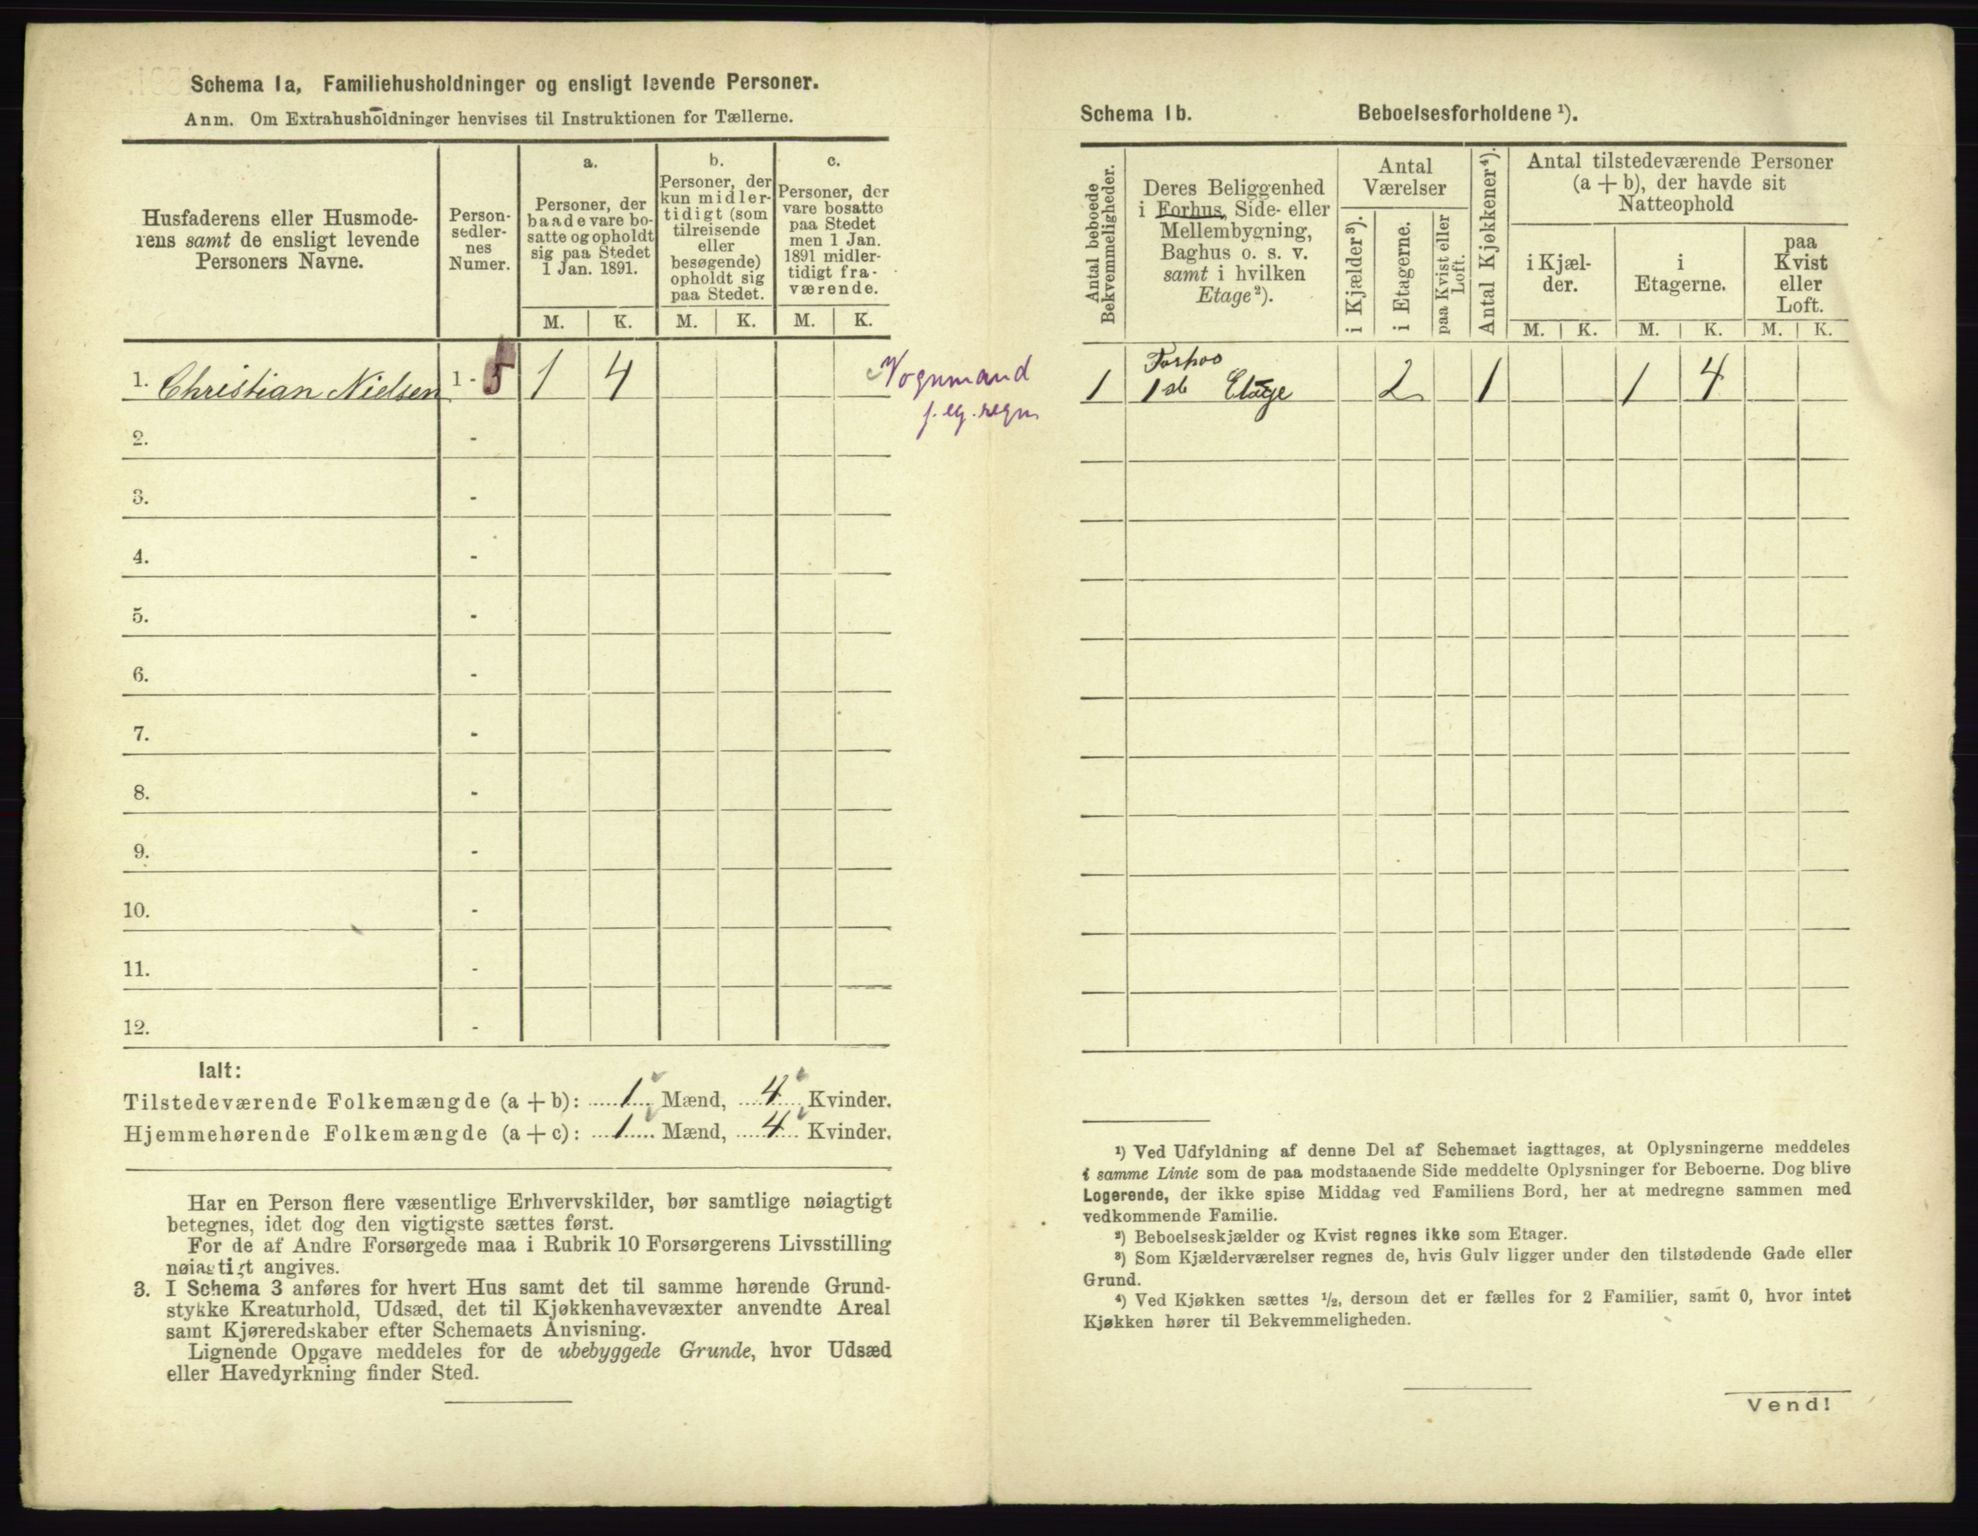 Schema 1a, Familiehusholdninger og ensligt levende Personer.
Anm. Om Extrahusholdninger henvises til Instruktionen for Tællerne.
Husfaderens eller Husmode-
rens samt de ensligt levende
Personers Navne.
Person-
sedler-
nes
Numer.
a.
Personer, der
baade vare bo-
satte og opholdt
sig paa Stedet
1 Jan. 1891.
b.
Personer, der
kun midler-
tidigt (som
tilreisende
eller
besøgende)
opholdt sig
paa Stedet.
c.
Personer, der
vare bosatte
paa Stedet
men 1 Jan.
1891 midler-
tidigt fra-
værende.
M. K. M. K. M. K.
1. Christian Nielsen 1 - 5 1 4
Vognmand
f. eg. regn
2. -
3. -
4. -
5. -
6. -
7. -
8. -
9. -
10. -
11. -
12. -
Ialt:
Tilstedeværende Folkemængde (a + b): 1 Mænd, 4 Kvinder.
Hjemmehørende Folkemængde (a + c): 1 Mænd, 4 Kvinder.
Har en Person flere væsentlige Erhvervskilder, bør samtlige nøiagtigt
betegnes, idet dog den vigtigste sættes først.
For de af Andre Forsørgede maa i Rubrik 10 Forsørgerens Livsstilling
nøiagtigt angives.
3. I Schema 3 anføres for hvert Hus samt det til samme hørende Grund-
stykke Kreaturhold, Udsæd, det til Kjøkkenhavevæxter anvendte Areal
samt Kjøreredskaber efter Schemaets Anvisning.
Lignende Opgave meddeles for de ubebyggede Grunde, hvor Udsæd
eller Havedyrkning finder Sted.
Schema 1b. Beboelsesforholdene ¹).
Antal beboede
Bekvemmeligheder.
Deres Beliggenhed
i Forhus, Side- eller
Mellembygning,
Baghus o. s. v.
samt i hvilken
Etage²).
Antal
Værelser
i Kjælder³).
i Etagerne.
paa Kvist eller
Loft.
Antal Kjøkkener⁴).
Antal tilstedeværende Personer
(a + b), der havde sit
Natteophold
i Kjæl-
der.
i
Etagerne.
paa
Kvist
eller
Loft.
M. K. M. K. M. K.
1 1ste Etage 2 1 1 4
¹) Ved Udfyldning af denne Del af Schemaet iagttages, at Oplysningerne meddeles
i samme Linie som de paa modstaaende Side meddelte Oplysninger for Beboerne. Dog blive
Logerende, der ikke spise Middag ved Familiens Bord, her at medregne sammen med
vedkommende Familie.
²) Beboelseskjælder og Kvist regnes ikke som Etager.
³) Som Kjælderværelser regnes de, hvis Gulv ligger under den tilstødende Gade eller
Grund.
⁴) Ved Kjøkken sættes ½, dersom det er fælles for 2 Familier, samt 0, hvor intet
Kjøkken hører til Bekvemmeligheden.
Vend!